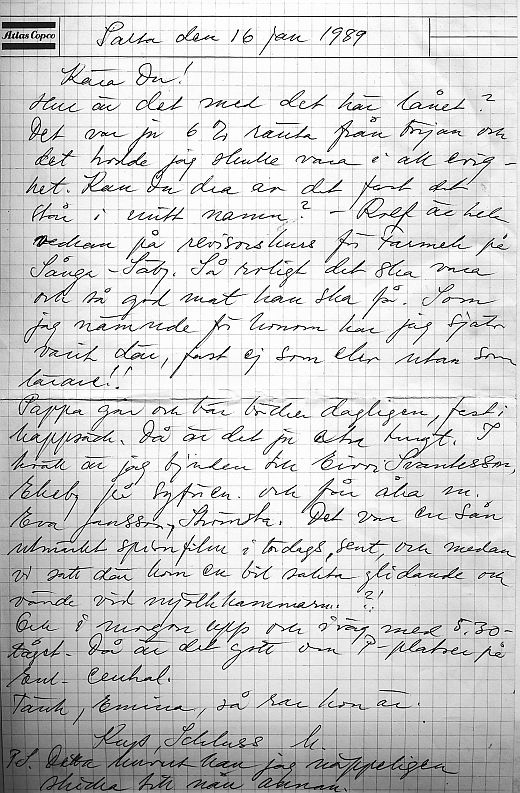 Atlas Copco
Salta den 16 jan 1989
Kära Du!
Hur är det med det här lånet?
Det var ju 6 % ränta från början och
det trodde jag skulle vara i all evig-
het. Kan Du dra av det fast det
står i mitt namn? - Rolf är hela
veckan på revisorskurs för Farmek på
Sånga-Säby. Så roligt det ska vara
och så god mat han ska få. Som
jag nämnde för honom har jag själv
varit där, fast ej som elev utan som
lärare!!
Pappa går och bär böcker dagligen, fast i
kappsäck. Då är det ju extra tungt. I
kväll är jag bjuden till Svantesson,
Ekeby på och får åka m.
Eva Jansson, Strömsta. Det var en sån
utmärkt spionfilm i torsdags, sent, och medan
vi satt där kom en bil sakta glidande och
vände vid mjölkkammarn. ?!
Och i morgon upp och iväg med 5.30-
tåget. Då är det gott om P-platser på
Central.
Tänk, Emma, så rar hon är.
Kyss, Schluss M.
P.S. Detta kuvert kan jag näppeligen
skicka till nån annan.